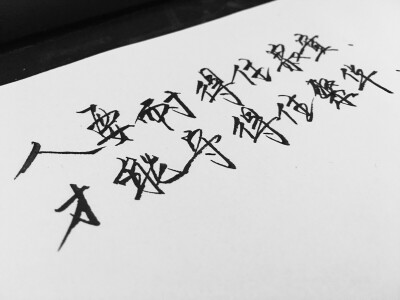 人要耐得住寂寞.
才能守得住繁华.